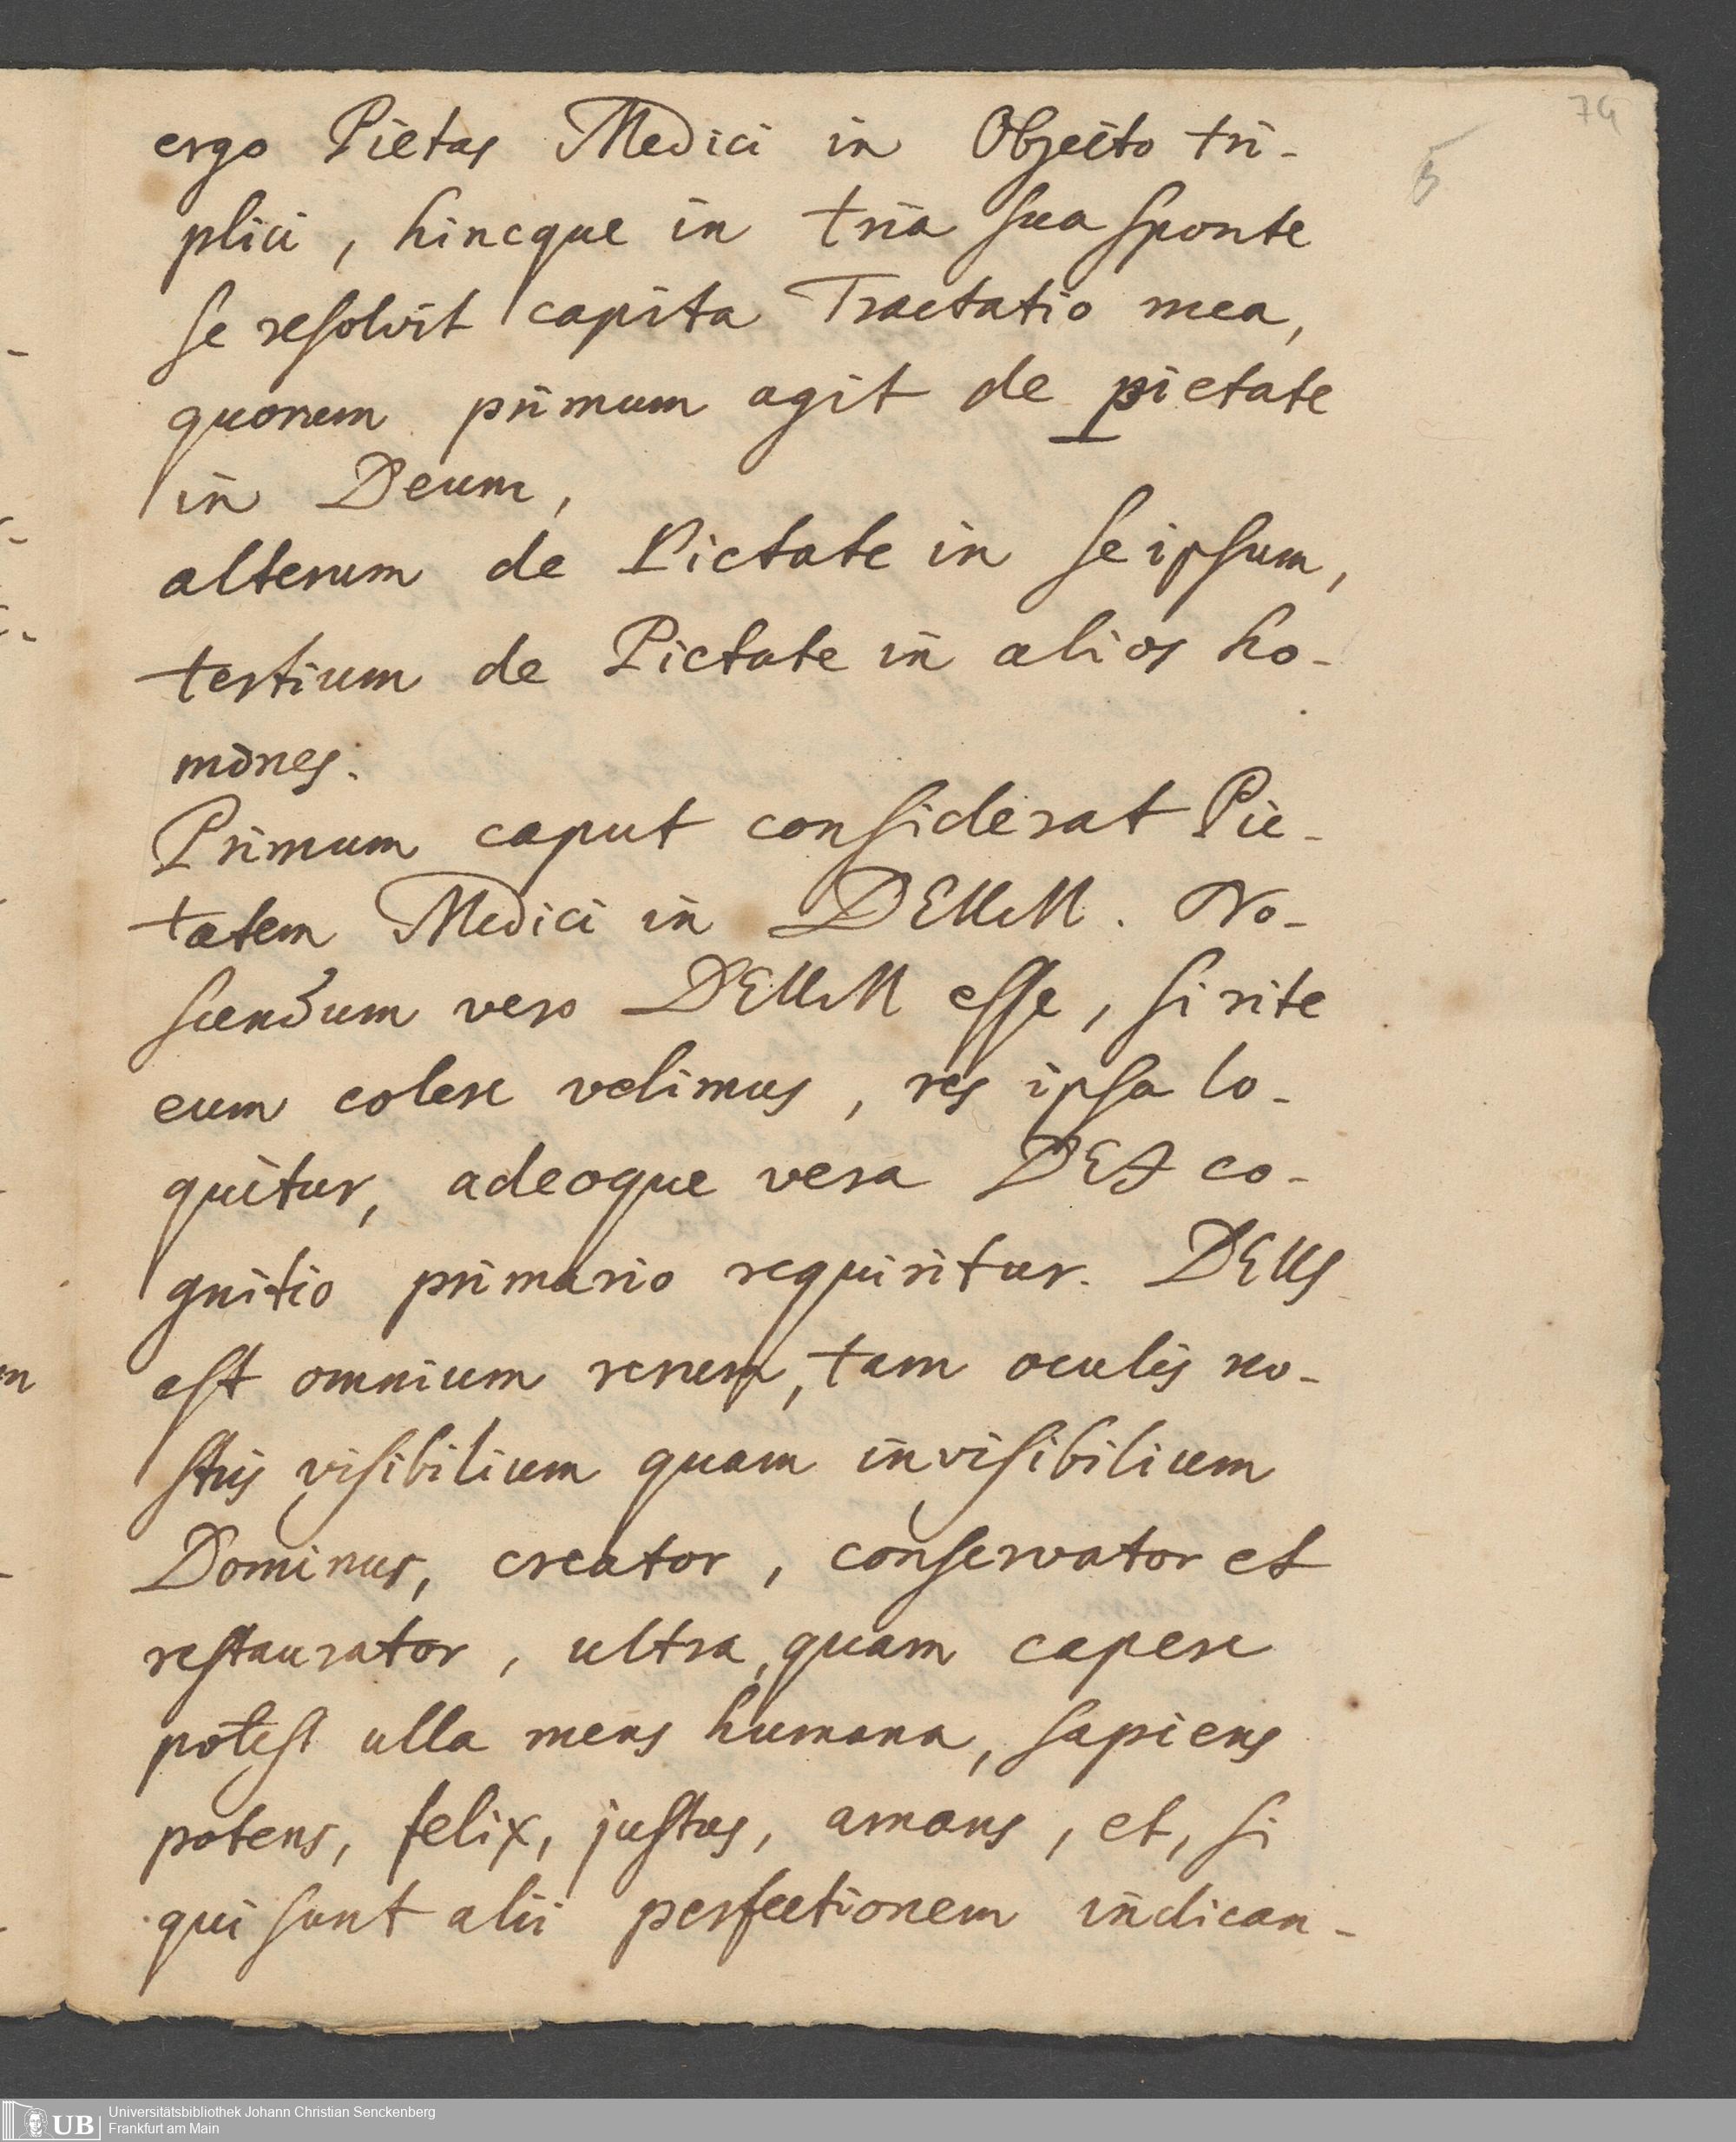 74
5
ergo Pietas Medici in Objecto tri-
plici, hincque in tria sua sponte
se resolvit capita Tractatio mea,
quorum primum agit de pietate
in Deum,
alterum de Pietate in se ipsum,
tertium de Pietate in alios ho-
mines.
Primum caput considerat Pie-
tatem Medici in DEUM. No-
scendum vero DEUM esse, si rite
eum colere velimus, res ipsa lo-
quitur, adeoque vera DEI co-
gnitio primario requiritur. DEUS
est omnium rerum, tam oculis no-
stris visibilium quam invisibilium
Dominus, creator, conservator et
restaurator, ultra, quam capere
potest ulla mens humana, sapiens
potens, felix, justus, amans, et, si
qui sunt alii perfectionem indican-
UB Universitätsbibliothek Johann Christian Senckenberg
Frankfurt am Main